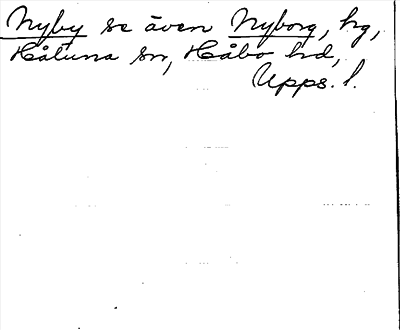 Nyby se även Nyborg, hg,
Håtuna sn, Håbo hd,
Upps. l.